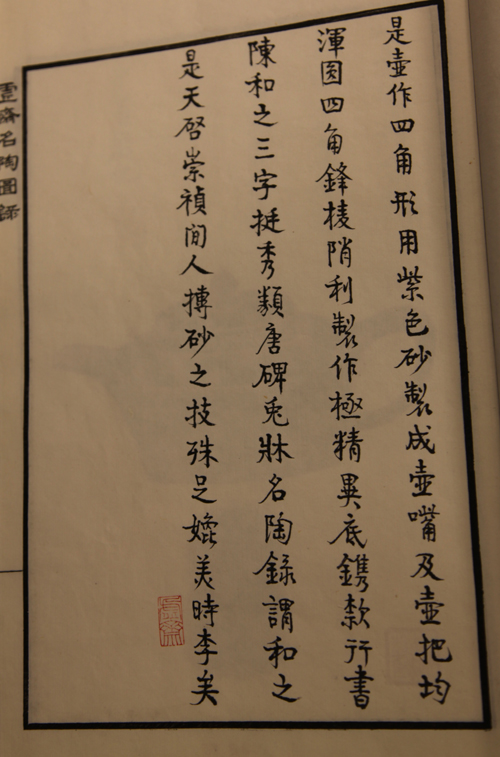 是壺作四角形用紫色砂製成壺嘴及壺把均
渾圓四角鋒棱陗利製作極精異底鐫款行書
陳和之三字挺秀類唐碑兎牀名陶錄謂和之
是天启崇禎間人摶砂之技殊足媲美時李矣
虛齋
虛齋名陶圖錄